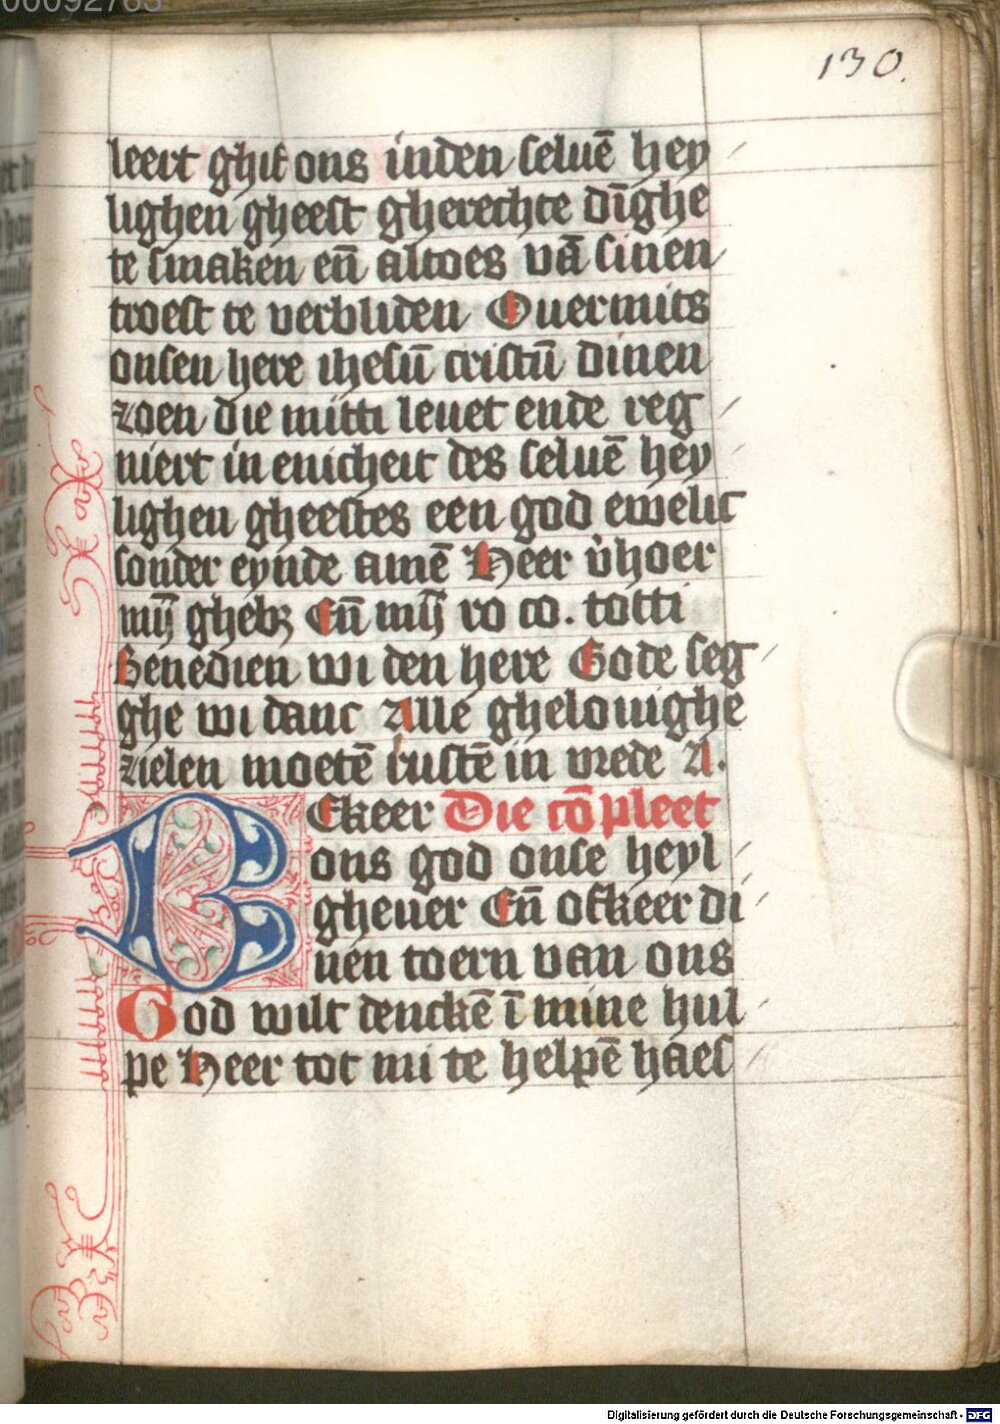 00092763
130.
leert ghif ons inden seluē hey
lighen gheest gherechte dīghe
te smaken en̄ altoes vā sinen
troest te verbliden Ouermits
onsen here ihesū cristū dinen
zoen die mitti leuet ende reg
niert in enicheit des seluē hey
lighen gheestes een god ewelic
sonder eynde amē Heer v̓hoer
mÿ ghebꝫ En̄ mÿ ro co. totti
Benedien wi den here Gode seg
ghe wi danc Alle ghelouighe
zielen moetē rustē in vrede A.
BEkeer Die cōpleet
ons god onse heyl
gheuer En̄ ofkeer di
nen toern van ons
God wilt denckē ī mine hul
pe Heer tot mi te helpē haes
Digitalisierung gefördert durch die Deutsche Forschungsgemeinschaft - DFG